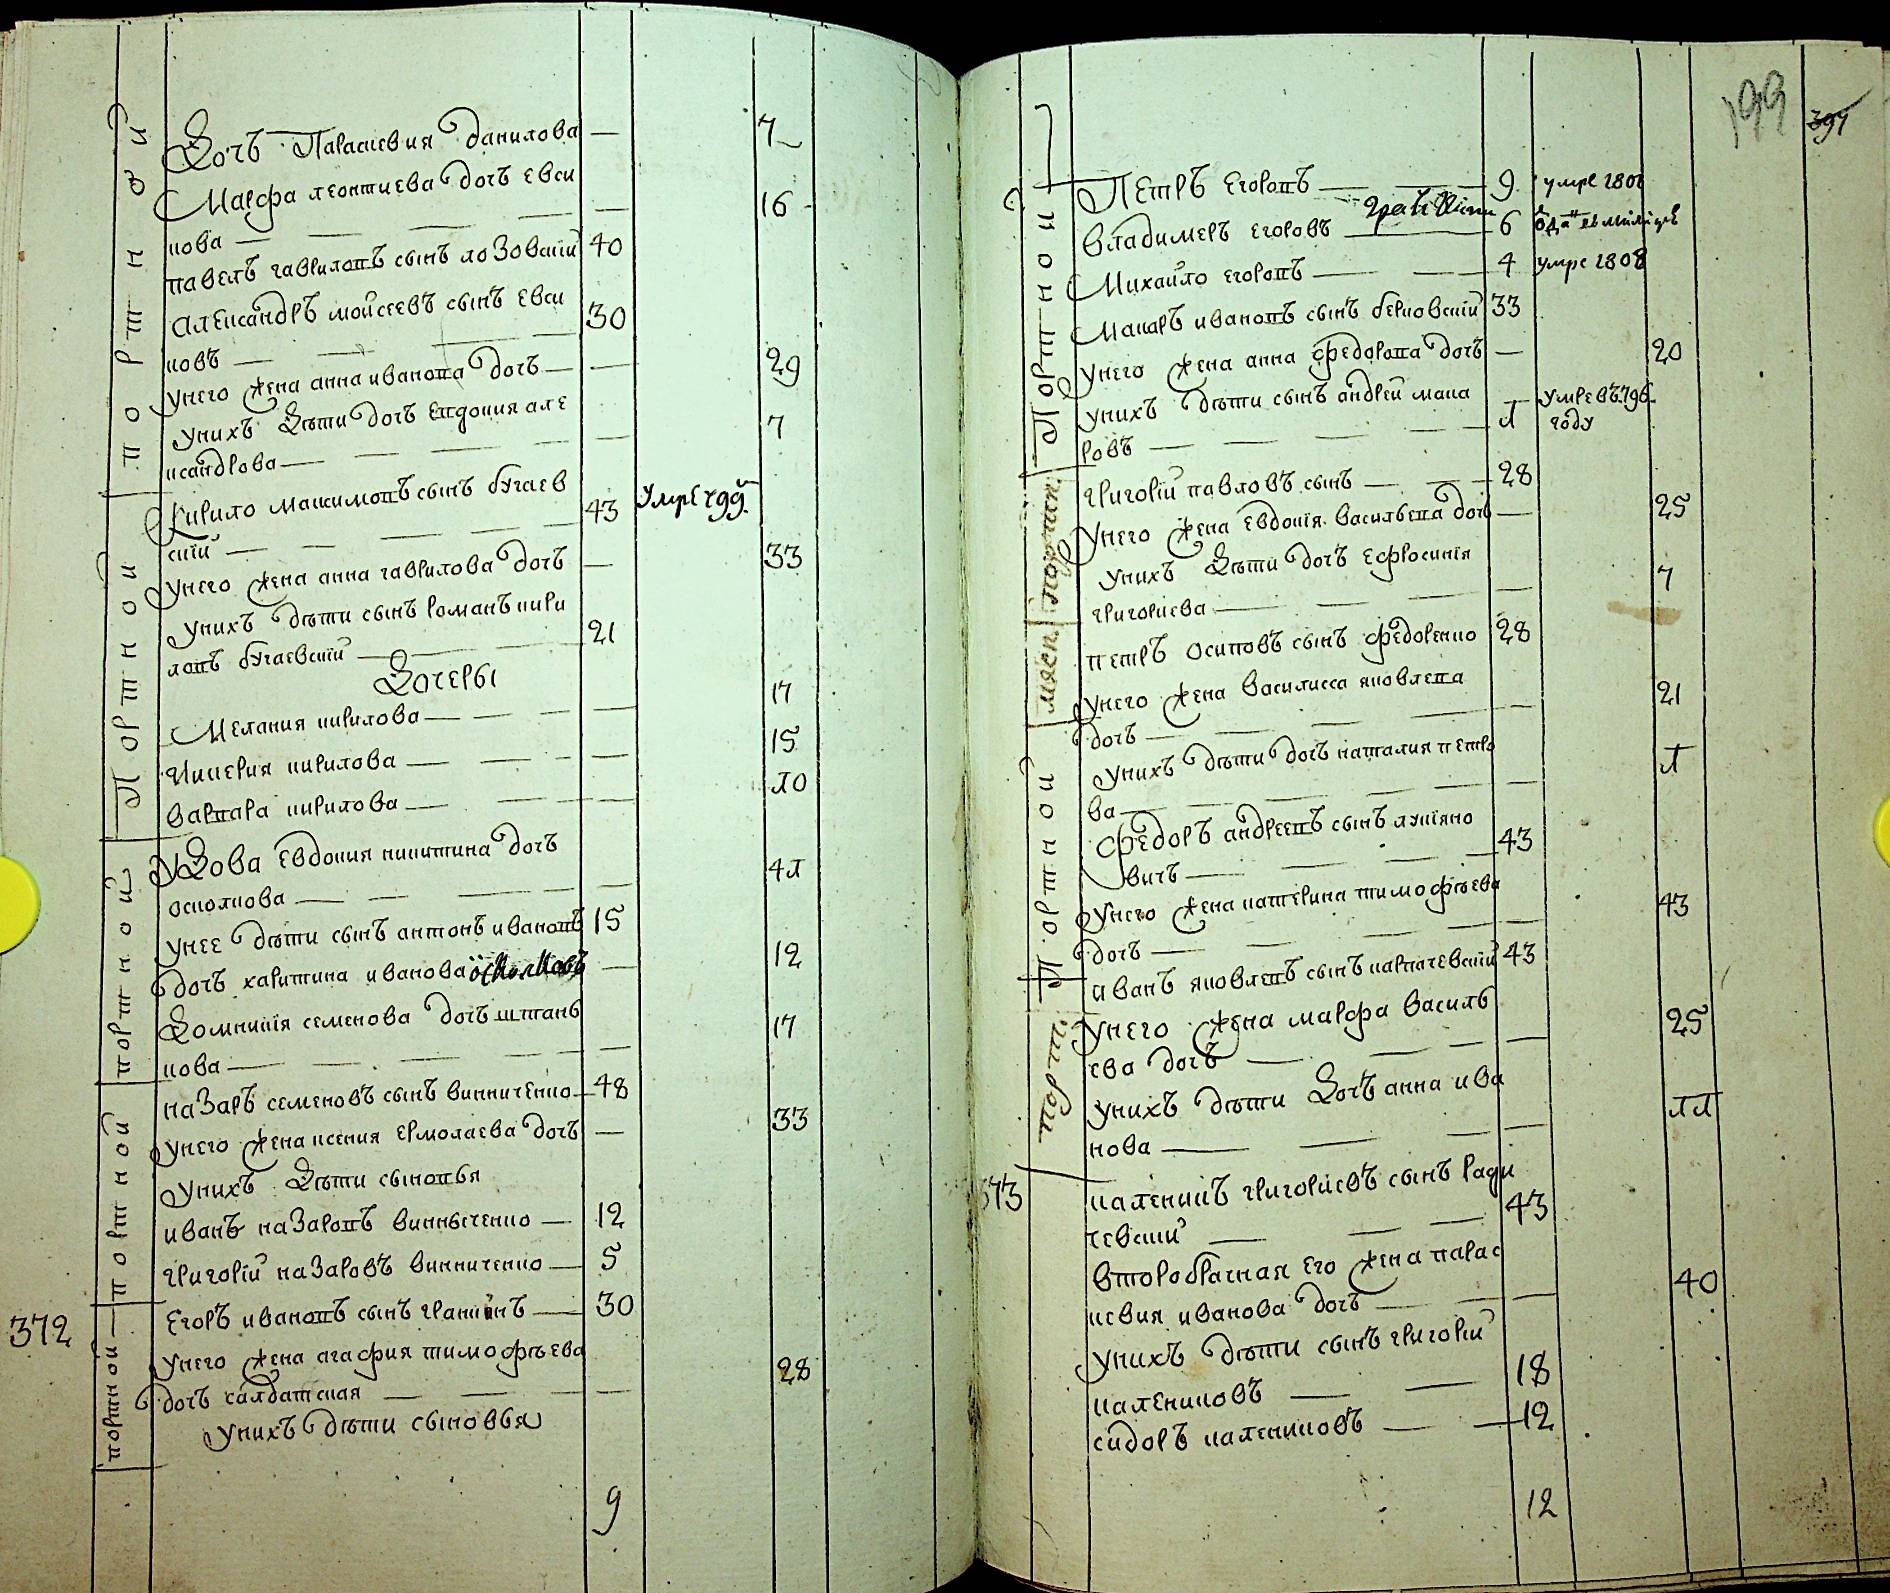 портной
Дочъ Параскевия данилова — 7
Марфа леонтиева дочъ евси
кова — 16
павелъ гавриловъ сынъ лозовский 40
александръ мойсеевъ сынъ евси
ковъ — 30
унего жена анна иванова дочъ — 29
унихъ Дѣти дочъ евдокия але
ксандрова — 7
портной
Кирило максимовъ сынъ бугаев
ский — 43 умре 799
унего жена анна гаврилова дочъ — 33
унихъ дѣти сынъ романъ кири
ловъ бугаевский — 21
Дочеры
Мелания кирилова — 17
кикерия кирилова — 15
варвара кирилова — 10
портной
уДова евдокия никитина дочъ
осколкова — 41
унее дѣти сынъ антонъ ивановъ 15
дочъ харитина иванова осколковъ — 12
Домникія семенова дочъ штгань
кова — 17
портной
назаръ семеновъ сынъ винниченко — 48
унего жена ксения ермолаева дочъ — 33
унихъ Дѣти сыновья
иванъ назаровъ винныченко — 12
григорій назаровъ винниченко — 5
372
портной
Егоръ ивановъ сынъ гранкинъ — 30
унего жена агафия тимофѣева
дочъ салдатская — 28
унихъ дѣти сыновья
9
199
397
портной
Петръ егоровъ — 9 умре 1808
владимеръ егоровъ — 6
Михайло егоровъ — 4 умре 1808
Макаръ ивановъ сынъ берковский 33
унего жена анна федорова дочъ — 20
унихъ дѣти сынъ андрей мака
ровъ — 1 умре въ 796
году
портн.
григорій павловъ сынъ — 28
унего жена евдокія васильева дочъ — 25
унихъ Дѣти дочъ ефросинія
григориева — 7
мясн.
петръ осиповъ сынъ федоренко 28
унего жена василисса яковлева
дочъ — 21
унихъ дѣти дочъ наталия петро
ва — 1
портной
Федоръ андреевъ сынъ лукіяно
вичъ — 43
унего жена катерина тимофѣева
дочъ — 43
портн.
иванъ яковлевъ сынъ карпачевский 43
унего жена марфа василь
ева дочъ — 25
унихъ дѣти Дочъ анна ива
нова — 11
373
каленикъ григориевъ сынъ ради
чевский — 43
второбрачная его жена парас
кевия иванова дочъ — 40
унихъ дѣти сынъ григорий
калениковъ — 18
сидоръ калениковъ — 12
12